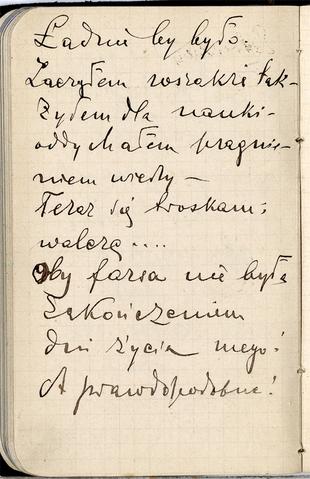 Ładnie by było.
Zacząłem wszakże tak –
Żyłem dla nauki –
oddychałem pragnie-
niem wiedzy –
Teraz się troskam;
walczę ....
Oby farsa nie była
Zakończeniem
dni życia mego!
A prawdopodobne!